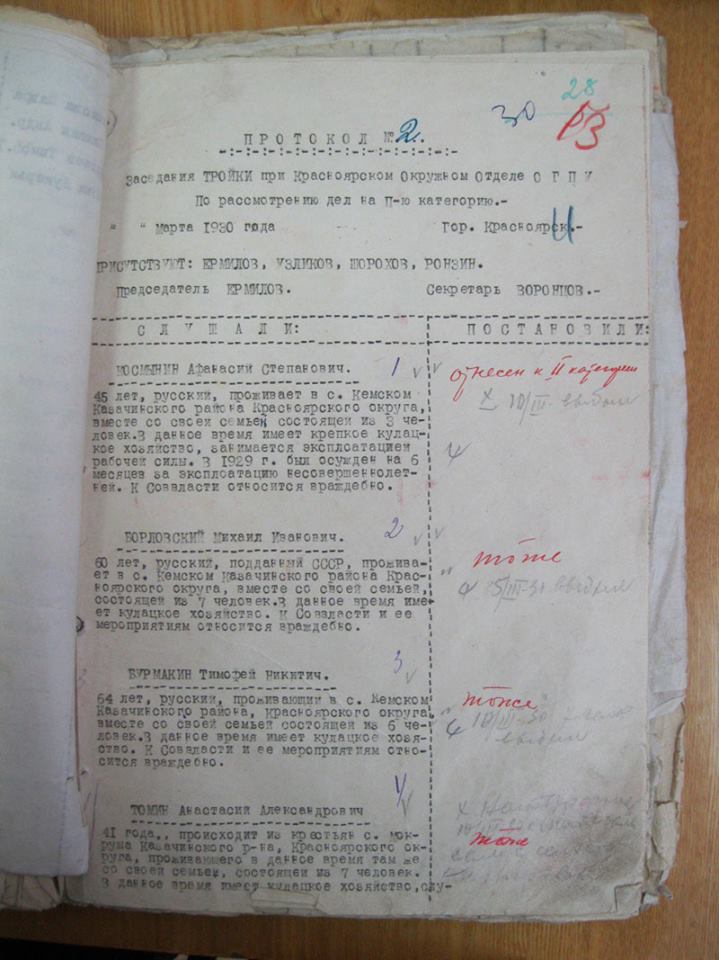 30 28
13
ПРОТОКОЛ № 2.
заседания ТРОЙКИ при Красноярском Окружном Отделе ОГПУ
По рассмотрению дел на П-ю категорию.-
"   " марта 1930 года Гор. Красноярск.-
ПРИСУТСТВУЮТ: ЕРМИЛОВ, УЗЛИКОВ, ШОРОХОВ, РОНЗИН.
Председатель ЕРМИЛОВ. Секретарь ВОРОНЦОВ.-
СЛУШАЛИ: ПОСТАНОВИЛИ:
МОСМЫНИН Афанасий Степанович. 1
отнесен к II категории
45 лет, русский, проживает в с. Кемском
Казачинского района Красноярского округа,
вместе со своей семьей состоящей из 3 че-
ловек.В данное время имеет крепкое кулац-
кое хозяйство, занимается эксплоатацией
рабочей силы. В 1929 г. был осужден на 6
месяцев за эксплоатацию несовершеннолет-
ней. К Соввласти относится враждебно.
БОРЛОВСКИЙ Михаил Иванович. 2
тоже
60 лет, русский, подданный СССР, прожива-
ет в с. Кемском Казачинского района Крас-
ноярского округа, вместе со своей семьей,
состоящей из 7 человек.В данное время име-
ет кулацкое хозяйство. К Соввласти и ее
мероприятиям относится враждебно.
БУРМАКИН Тимофей Никитич. 3
тоже
64 лет, русский, проживающий в с. Кемском
Казачинского района, Красноярского округа,
вместе со своей семьей состоящей из 6 че-
ловек.В данное время имеет кулацкое хозяй-
ство. К Соввласти и ее мероприятиям отно-
сится враждебно.
ТОМИН Анастасий Александрович 4
тоже
41 года,, происходит из крестьян с. Мок-
руша Казачинского р-на, Красноярского ок-
руга, проживающего в данное время там же
со своей семьей, состоящей из 7 человек.
В данное время имеет кулацкое хозяйство,слу-